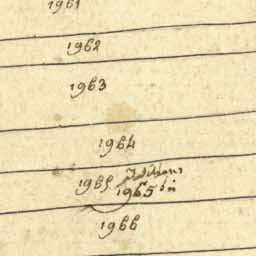 1961
1962
1963
1964
1965
1965 in
1966